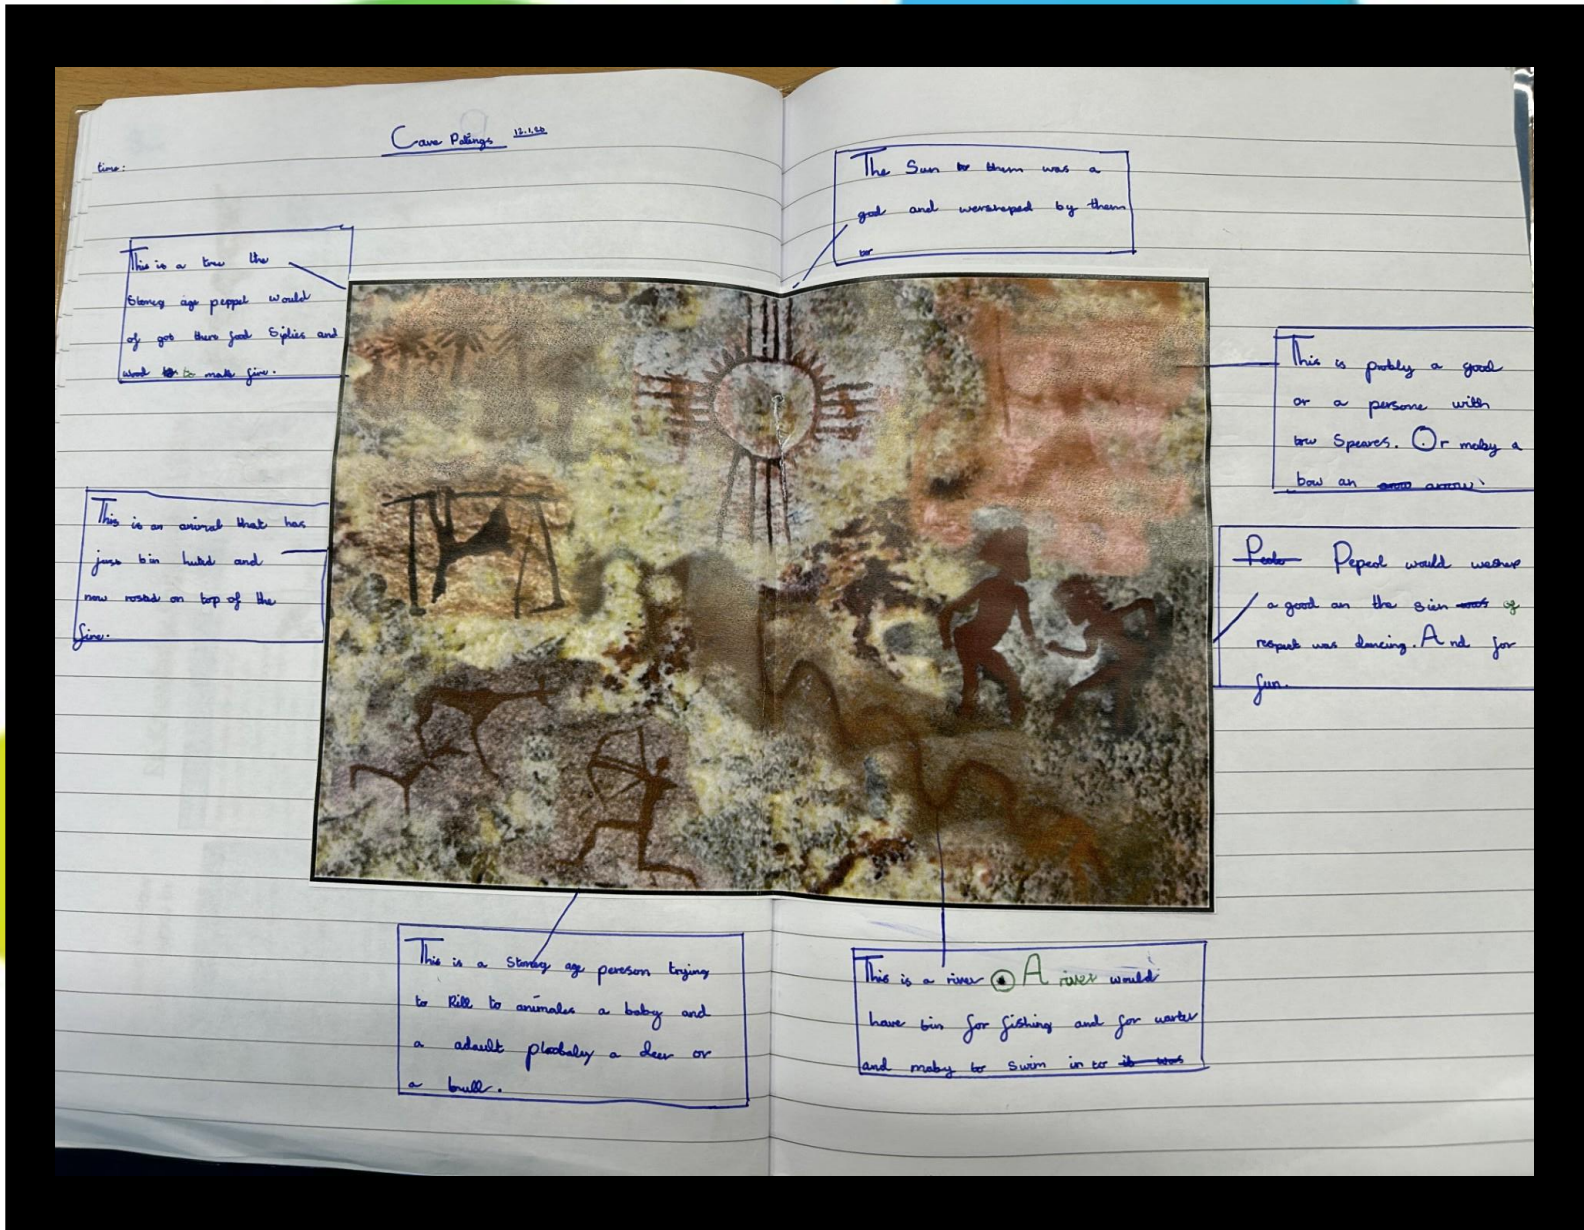 Cave Patings 12.1.26
time:
The Sun to them was a
god and wersheped by them
to
This is a tree the
Stoney age peppel would
of got there food Siplies and
wood to to mak fire.
This is probly a good
or a persone with
tow Speares. Or maby a
bow an arrow.
This is an animal that has
just bin huted and
now rosted on top of the
fire.
Pepeol would weshep
a good an the sien of
respect was dancing. And for
fun.
This is a Stoney age pereson trying
to kill to animales a baby and
a adault plobabley a deer or
a bull.
This is a river. A river would
have bin for fishing and for warter
and maby to swim in to it was